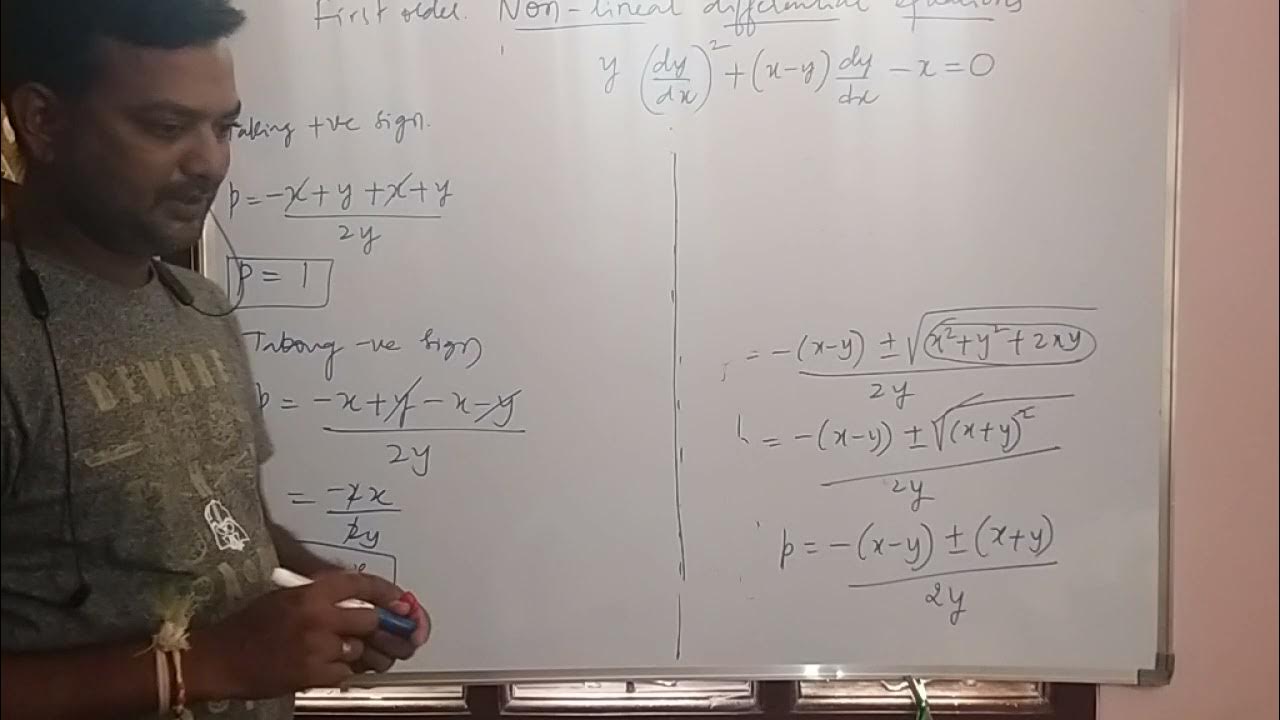 First order. Non-linear differential equations
y (dy/dx)² + (x-y) dy/dx - x = 0
Taking +ve sign.
p = -x + y + x + y / 2y
p = 1
Taking -ve sign
p = -x + y - x - y / 2y
= -2x / 2y
= -(x-y) ± √(x² + y² + 2xy) / 2y
= -(x-y) ± √(x+y)² / 2y
p = -(x-y) ± (x+y) / 2y